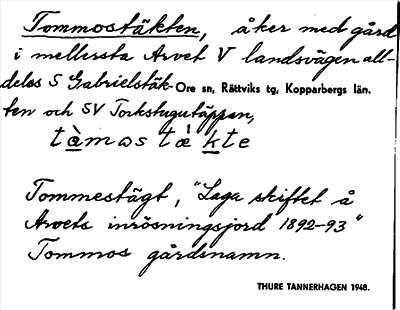 Tommostäkten, åker med gård
i mellersta Arvet V landsvägen all-
deles S Gabrielstäk-
Ore sn, Rättviks tg, Kopparbergs län.
ten och SV Torkstugutäppan,
tàmos tä́kte
Tommestägt, "Laga skiftet å
Arvets inrösningsjord 1892-93"
Tommos gårdsnamn.
THURE TANNERHAGEN 1948.